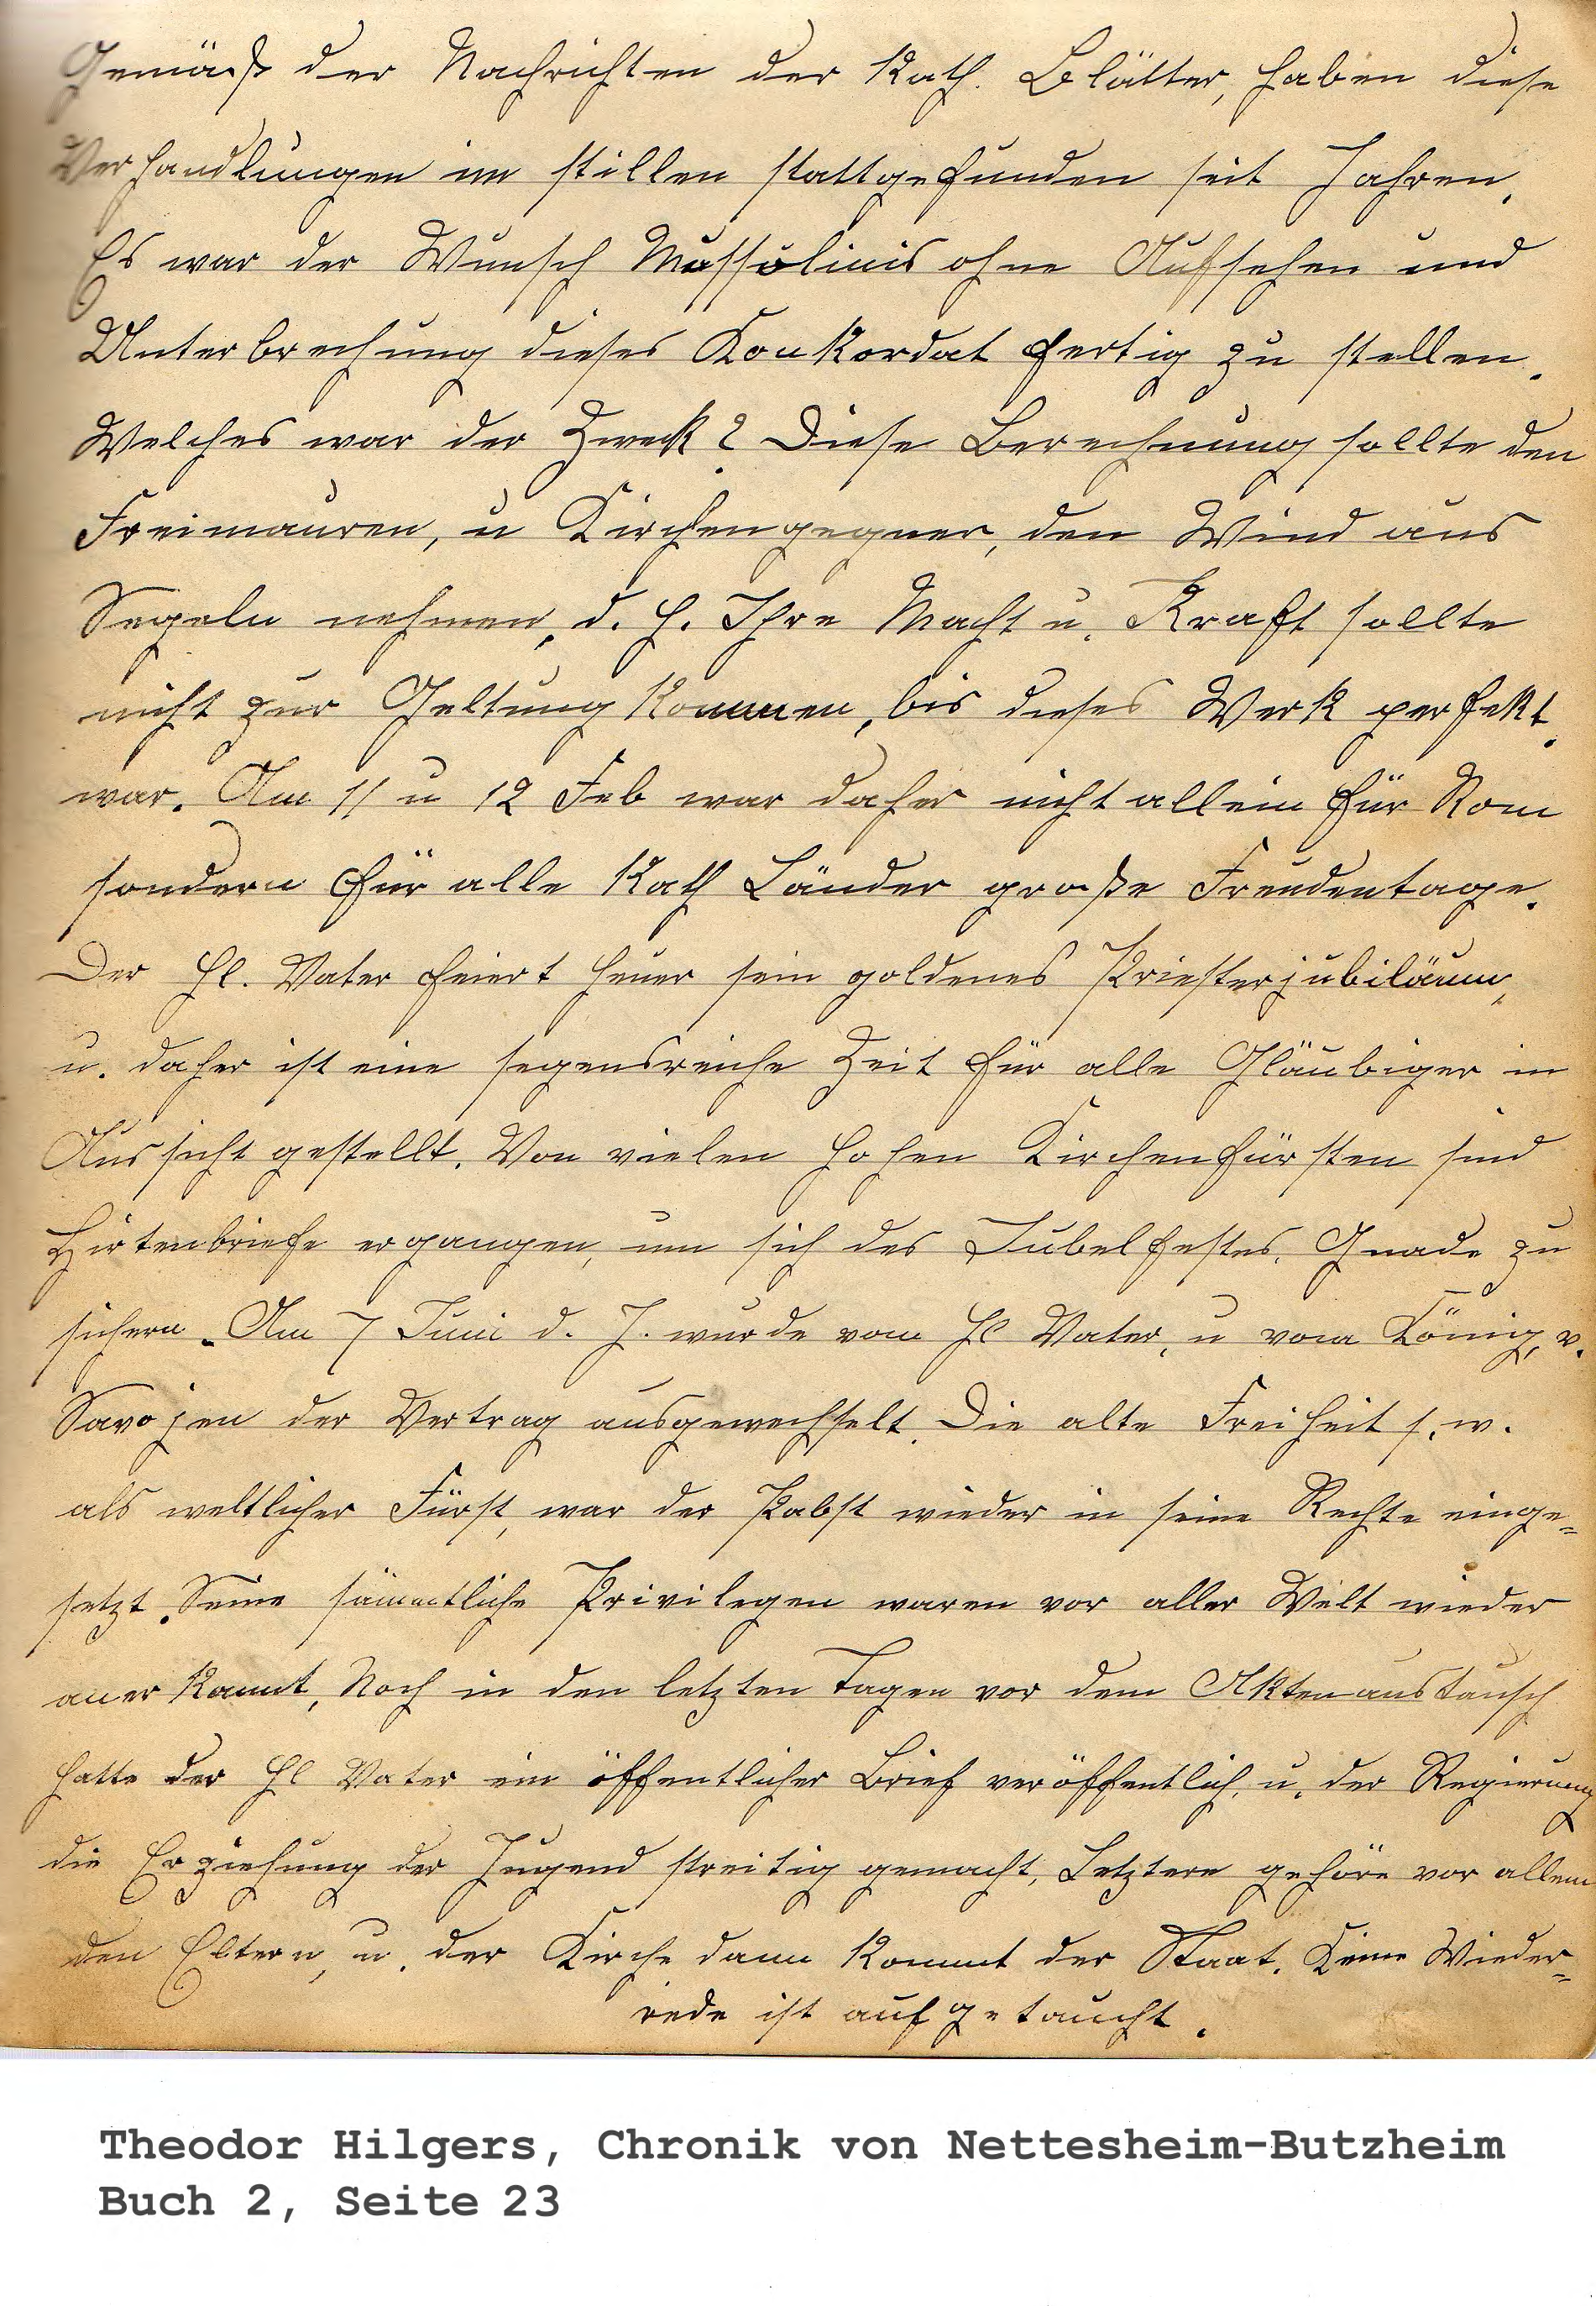 Gemäß der Nachrichten der Kath. Blätter, haben diese
Verhandlungen im stillen stattgefunden seit Jahren.
Es war der Wunsch Mussolinis ohne Aufsehen und
Unterbrechung dieses Konkordat fertig zu stellen.
Welches war der Zweck? Diese Berechnung sollte den
Freimauren, u Kirchengegner, den Wind aus
Segeln nehmen, d. h. Ihre Macht u. Kraft sollte
nicht zur Geltung kommen, bis dieses Werk perfekt
war. Am 11 u 12 Feb war daher nicht allein für Rom
sondern für alle Kath Länder große Freudentage.
Der Hl. Vater feiert heuer sein goldenes Priesterjubiläum,
u. daher ist eine segensreiche Zeit für alle Gläubiger in
Aussicht gestellt. Von vielen hohen Kirchenfürsten sind
Hirtenbriefe ergangen, um sich des Jubelfestes, Gnade zu
sichern. Am 7 Juni d. J. wurde vom Hl Vater, u vom König, v.
Savojen der Vertrag ausgewechselt. Die alte Freiheit s. w.
als weltlicher Fürst, war der Pabst wieder in seine Rechte einge=
setzt. Seine sämmtliche Privilegen waren vor aller Welt wieder
anerkannt, Noch in den letzten Tagen vor dem Aktenaustausch
hatte der Hl Vater ein öffentlicher Brief veröffentlich, u. der Regierung
die Erziehung der Jugend streitig gemacht, Letztere gehöre vor allem
den Eltern, u. der Kirche dann kommt der Staat. Keine Wieder=
rede ist aufgetaucht.
Theodor Hilgers, Chronik von Nettesheim-Butzheim
Buch 2, Seite 23